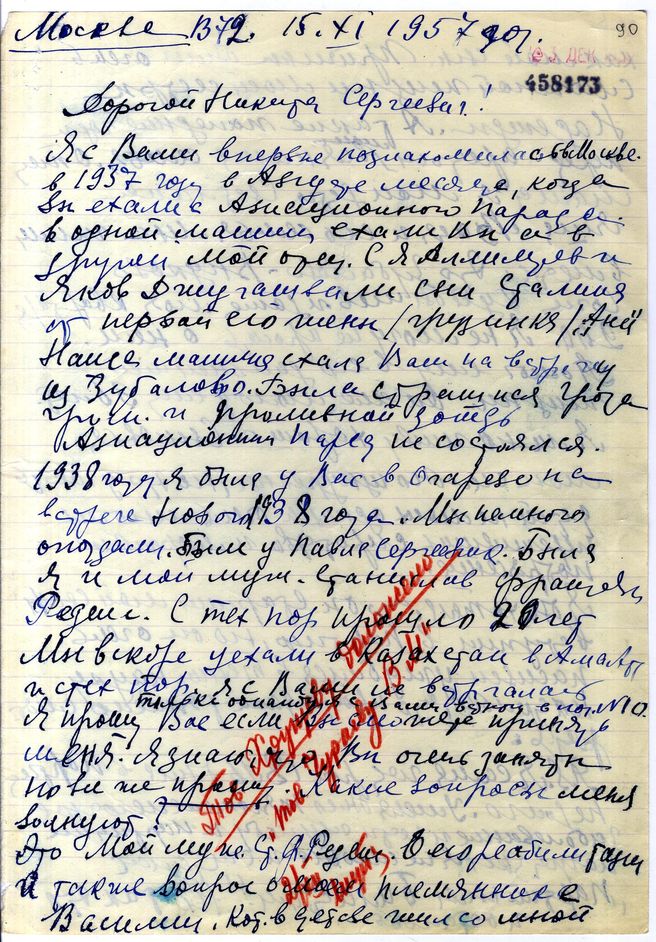 Москве В72. 15. XI 1957 год.
90
03 ДЕК
458173
Дорогой Никита Сергеевич!
Я с Вами впервые познакомилась в Москве.
в 1937 году в Августе месяце, когда
Вы ехали с Авиационного Парада.
в одной машине ехали Вы а в
другой мой отец. С Я Аллилуев и
Яков Джугашвали сын Сталина
от первой его жены /грузинка/
Наша машина ехала Вам на встречу
из Зубалово. Была страшная гроза
гром. и проливной дождь
Авиационный Парад не состоялся.
1938 году я была у Вас в Огарево на
встрече Нового 1938 года. Мы немного
опоздали. Были у Павла Сергеевича. Была
я и мой муж. Станислав Францевич
Реденс. С тех пор прошло 20 лет
Мы вскоре уехали в Казахстан в Алма Ату
и с тех пор я с Вами не встречалась
только однажды я с Вами
Я прошу Вас если Вы сможете принять
меня. Я знаю, что Вы очень заняты
но все же прошу. Какие вопросы меня
волнуют?
Это Мой муж. Ст. Ф. Реденс. О его реабилитации
и также вопрос о моем племяннике
Василии. Кот. в детстве жил со мной
Тов. Хрущеву доложено